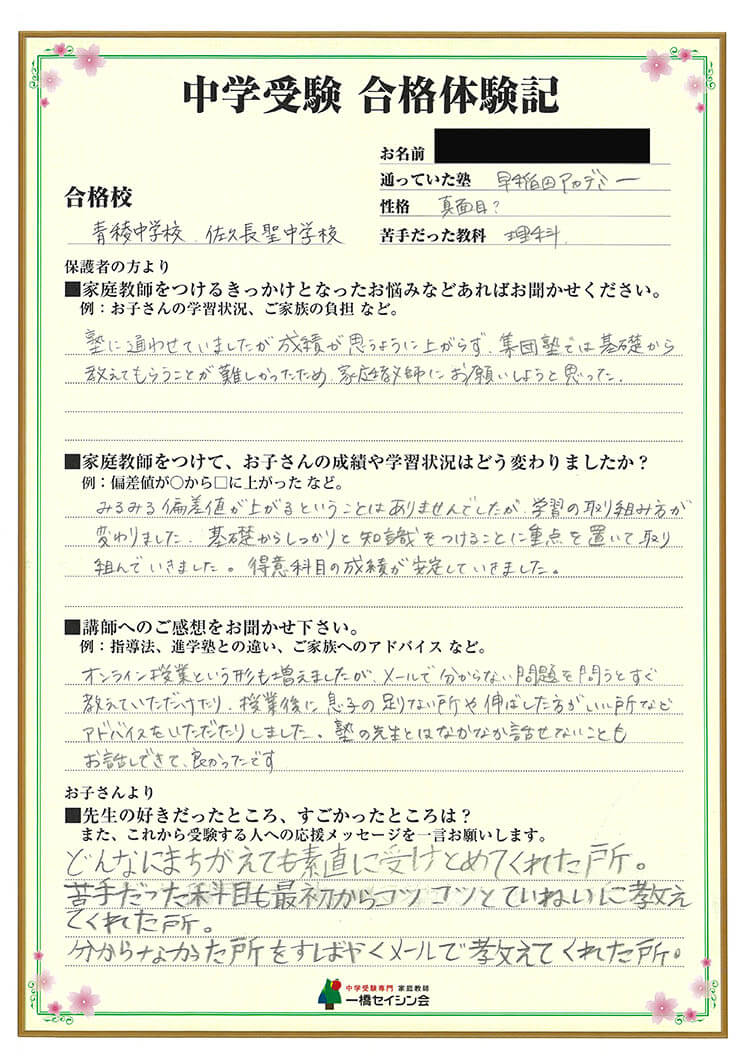 中学受験 合格体験記
お名前
通っていた塾 早稲田アカデミー
性格 真面目?
苦手だった教科 理科
合格校
青稜中学校、佐久長聖中学校
保護者の方より
■家庭教師をつけるきっかけとなったお悩みなどあればお聞かせください。
例:お子さんの学習状況、ご家族の負担 など。
塾に通わせていましたが成績が思うように上がらず、集団塾では基礎から
教えてもらうことが難しかったため、家庭教師にお願いしようと思った。
■家庭教師をつけて、お子さんの成績や学習状況はどう変わりましたか?
例:偏差値が○から□に上がった など。
みるみる偏差値が上がるということはありませんでしたが、学習の取り組み方が
変わりました。基礎からしっかりと知識をつけることに重点を置いて取り
組んでいきました。得意科目の成績が安定していきました。
■講師へのご感想をお聞かせ下さい。
例:指導法、進学塾との違い、ご家族へのアドバイス など。
オンライン授業という形も増えましたが、メールで分からない問題を問うとすぐ
教えていただけたり、授業後に息子の足りない所や伸ばした方がいい所など
アドバイスをいただたりしました。塾の先生とはなかなか話せないことも
お話しできて、良かったです
お子さんより
■先生の好きだったところ、すごかったところは?
また、これから受験する人への応援メッセージを一言お願いします。
どんなにまちがえても素直に受けとめてくれた所。
苦手だった科目も最初からコツコツとていねいに教え
てくれた所。
分からなかった所をすばやくメールで教えてくれた所。
中学受験専門 家庭教師
一橋セイシン会